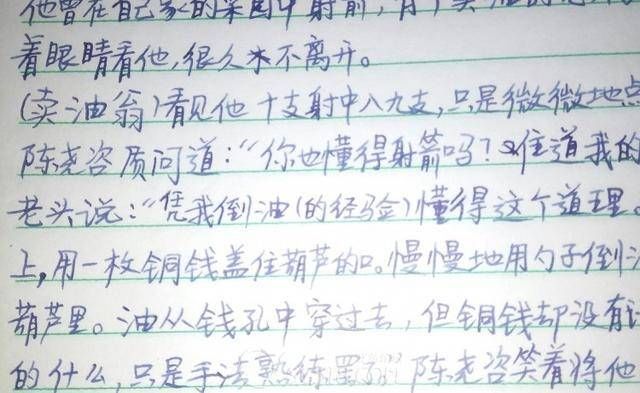 他曾在自己家的菜园中射箭,有个卖油的
着眼睛看他,很久不离开。
(卖油翁)看见他十支射中八九支,只是微微地点
陈尧咨质问道:“你也懂得射箭吗?道我的
老头说:“凭我倒油(的经验)懂得这个道理。
上,用一枚铜钱盖住葫芦的口。慢慢地用勺子倒
葫芦里。油从钱孔中穿过去,但铜钱却没有
的什么,只是手法熟练罢了 陈尧咨笑着将他